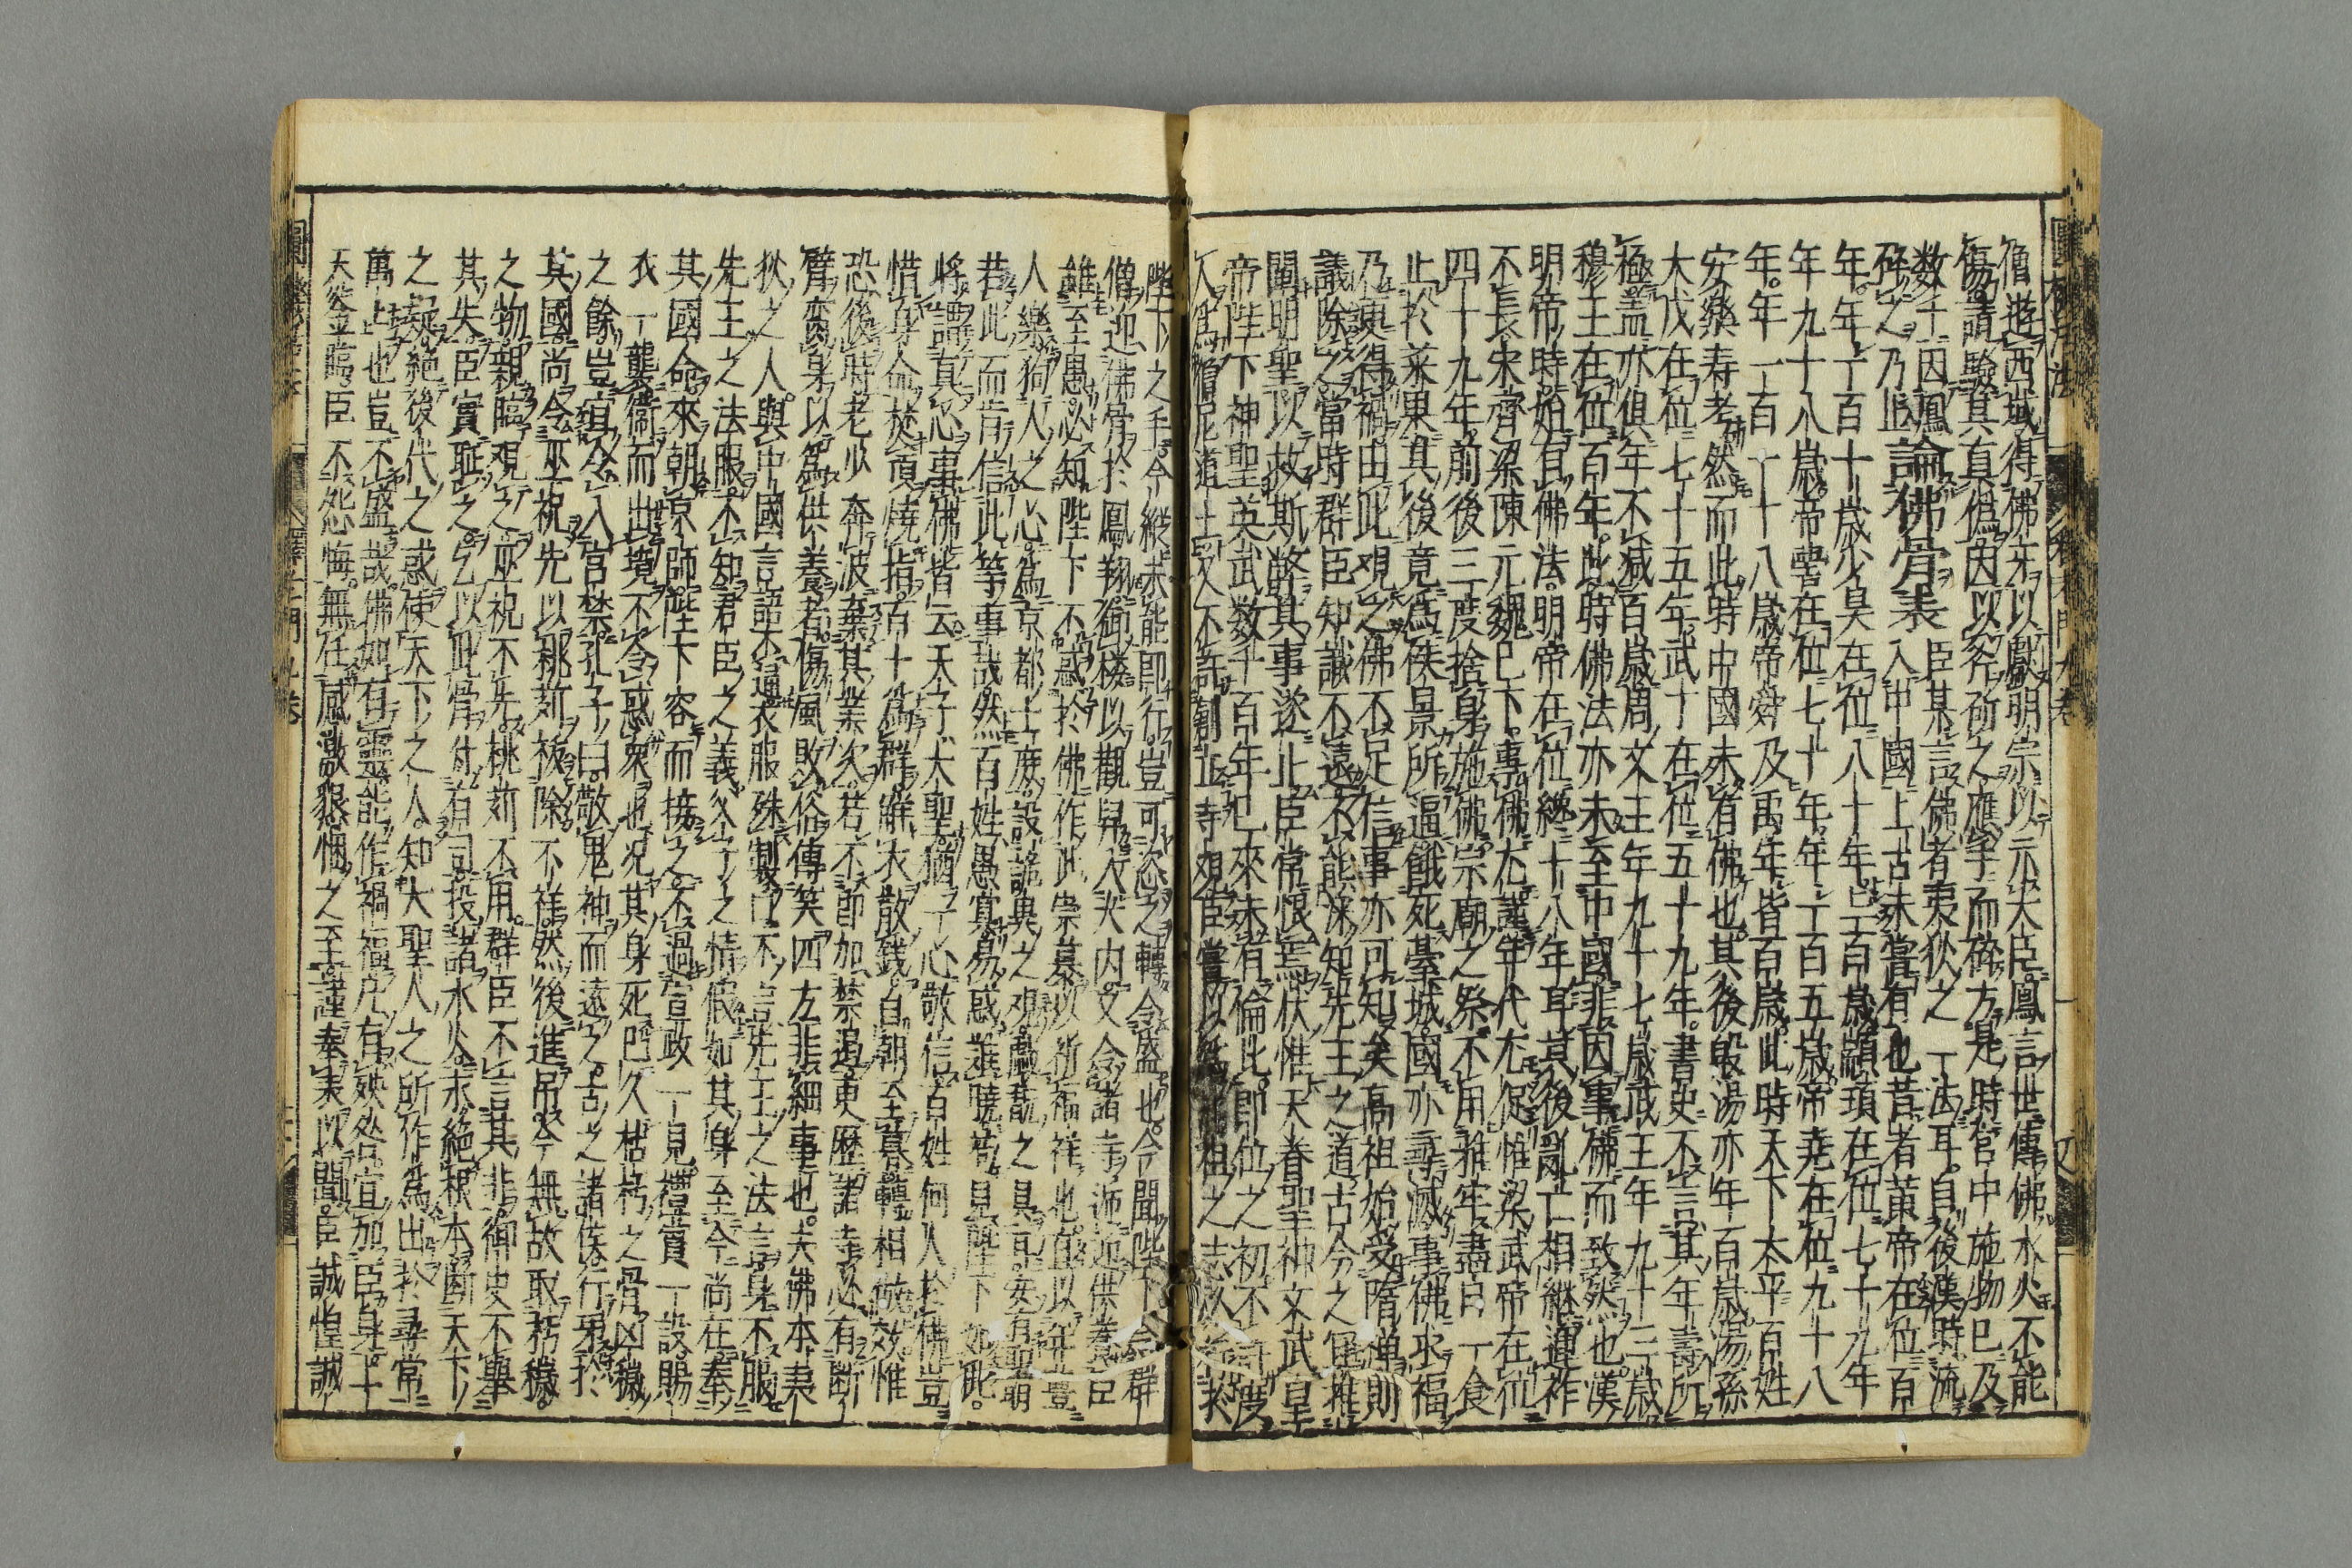 僧遊西域得佛牙以獻明宗以示大臣鳳言世傳佛牙水火不能
傷請驗其真偽因以斧斫之應手而碎方是時宮中施物已及
数千因鳳
碎之乃止 論佛骨表 臣某言佛者夷狄之一法耳自後漢時流
入中國上古未嘗有也昔者黃帝在位百
年年一百十歲少昊在位八十年年一百歲顓頊在位七十九年
年九十八歲帝嚳在位七十年年一百五歲帝堯在位九十八
年年一百一十八歲帝舜及禹年皆百歲此時天下太平百姓
安樂寿考然而此時中國未有佛也其後殷湯亦年百歲湯孫
太戊在位七十五年武丁在位五十九年書史不言其年壽所
極盖亦俱年不减百歲周文王年九十七歲武王年九十三歲
穆王在位百年此時佛法亦未至中國非因事佛而致然也漢
明帝時始有佛法明帝在位纔十八年耳其後亂亡相繼運祚
不長宋齊梁陳元魏已下事佛尤謹年代尤促惟梁武帝在位
四十九年前後三度捨身施佛宗廟之祭不用雅牢盡日一食
止於菜果其後竟為侯景所逼餓死臺城國亦尋滅事佛求福
乃更得禍由此观之佛不足信事亦可知矣高祖始受隋禅則
議除之當時群臣知識不遠不能深知先王之道古今之宜推
闡明聖以救斯弊其事遂止臣常恨焉伏惟天眷聖神文武皇
帝陛下神聖英武数千百年已來未有倫比即位之初不許度
人為僧尼道士又不許創立寺观臣嘗以為高祖之志必行於
陛下之手今縱未能即行豈可恣之轉令盛也今聞陛下令群
僧迎佛骨於鳳翔御楼以觀舁入大内又令諸寺逓迎供養臣
雖至愚必知陛下不惑於佛作此崇慕以祈福祥也直以年豊
人樂狥人之心為京都士庶設詭異之观戲翫之具耳安有聖明
若此而肯信此等事哉然百姓愚冥易惑難暁苟見陛下如此
將謂真心事佛皆云天子大聖猶一心敬信百姓何人於佛豈
惜身命焚頂燒指百十為群觧衣散錢自朝至暮轉相倣效惟
恐後時老少奔波棄其業次若不即加禁遏更歷諸寺必有断
臂臠身以為供養者傷風敗俗傳笑四方非細事也夫佛本夷
狄之人與中國言語不通衣服殊製口不言先王之法言身不服
先王之法服不知君臣之義父子之情假如其身至今尚在奉
其國命來朝京師陛下容而接之不過宣政一見禮賓一設賜
衣一襲衞而出境不令惑衆也况其身死已久枯朽之骨凶穢
之餘豈宜令入宮禁孔子曰敬鬼神而遠之古之諸侯行弔於
其國尚令巫祝先以桃茢祓除不祥然後進弔今無故取朽穢
之物親臨观之巫祝不先桃茢不用群臣不言其非御史不舉
其失臣實耻之乞以此骨付有司投諸水火永絶根本断天下
之疑絶後代之惑使天下之人知大聖人之所作為出於尋常
萬々也豈不盛哉佛如有靈能作禍福凡有殃咎宜加臣身上
天鉴臨臣不怨悔無任感激懇悃之至謹奉表以聞臣誠惶誠